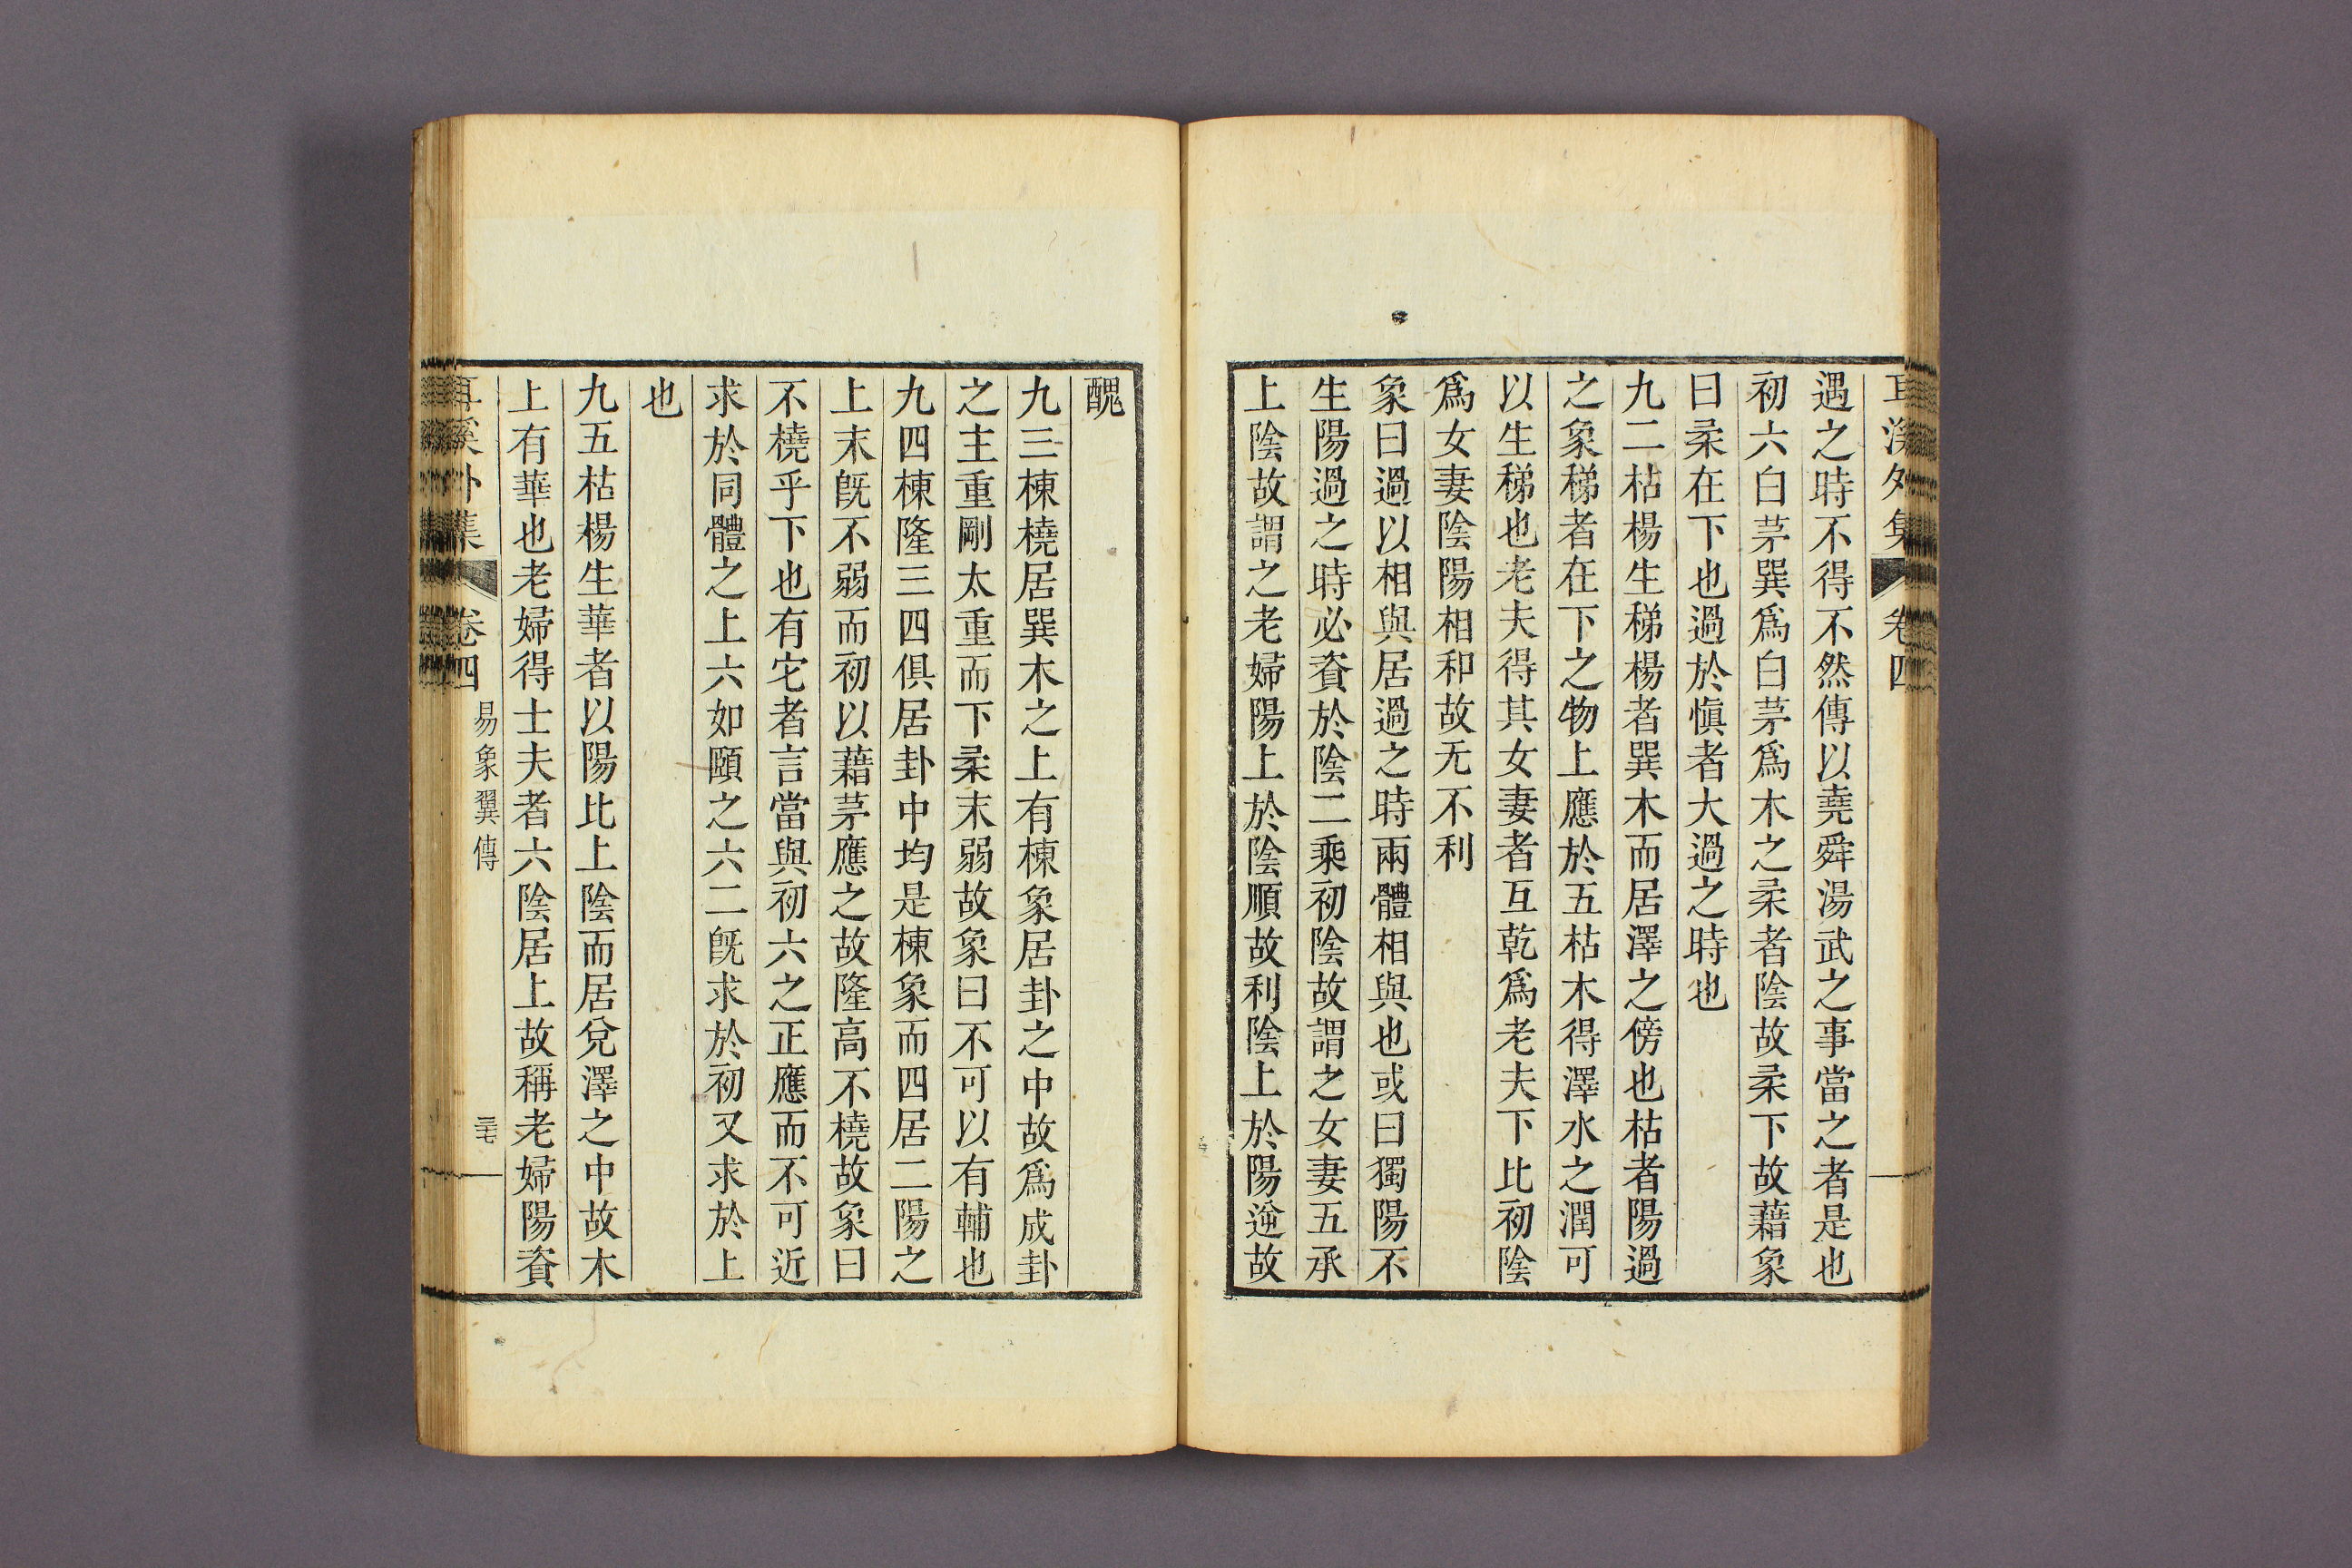 耳溪外集 卷四
遇之時不得不然傳以堯舜湯武之事當之者是也
初六白茅巽爲白茅爲木之柔者陰故柔下故藉象
曰柔在下也過於愼者大過之時也
九二枯楊生稊楊者巽木而居澤之傍也枯者陽過
之象稊者在下之物上應於五枯木得澤水之潤可
以生稊也老夫得其女妻者互乾爲老夫下比初陰
爲女妻陰陽相和故无不利
象曰過以相與居過之時兩體相與也或曰獨陽不
生陽過之時必資於陰二乘初陰故謂之女妻五承
上陰故謂之老婦陽上於陰順故利陰上於陽逆故
醜
九三棟橈居巽木之上有棟象居卦之中故爲成卦
之主重剛太重而下柔末弱故象曰不可以有輔也
九四棟隆三四俱居卦中均是棟象而四居二陽之
上末旣不弱而初以藉茅應之故隆高不橈故象曰
不橈乎下也有它者言當與初六之正應而不可近
求於同體之上六如頤之六二旣求於初又求於上
也
九五枯楊生華者以陽比上陰而居兌澤之中故木
上有華也老婦得士夫者六陰居上故稱老婦陽資
耳溪外集 卷四 易象翼傳 三七